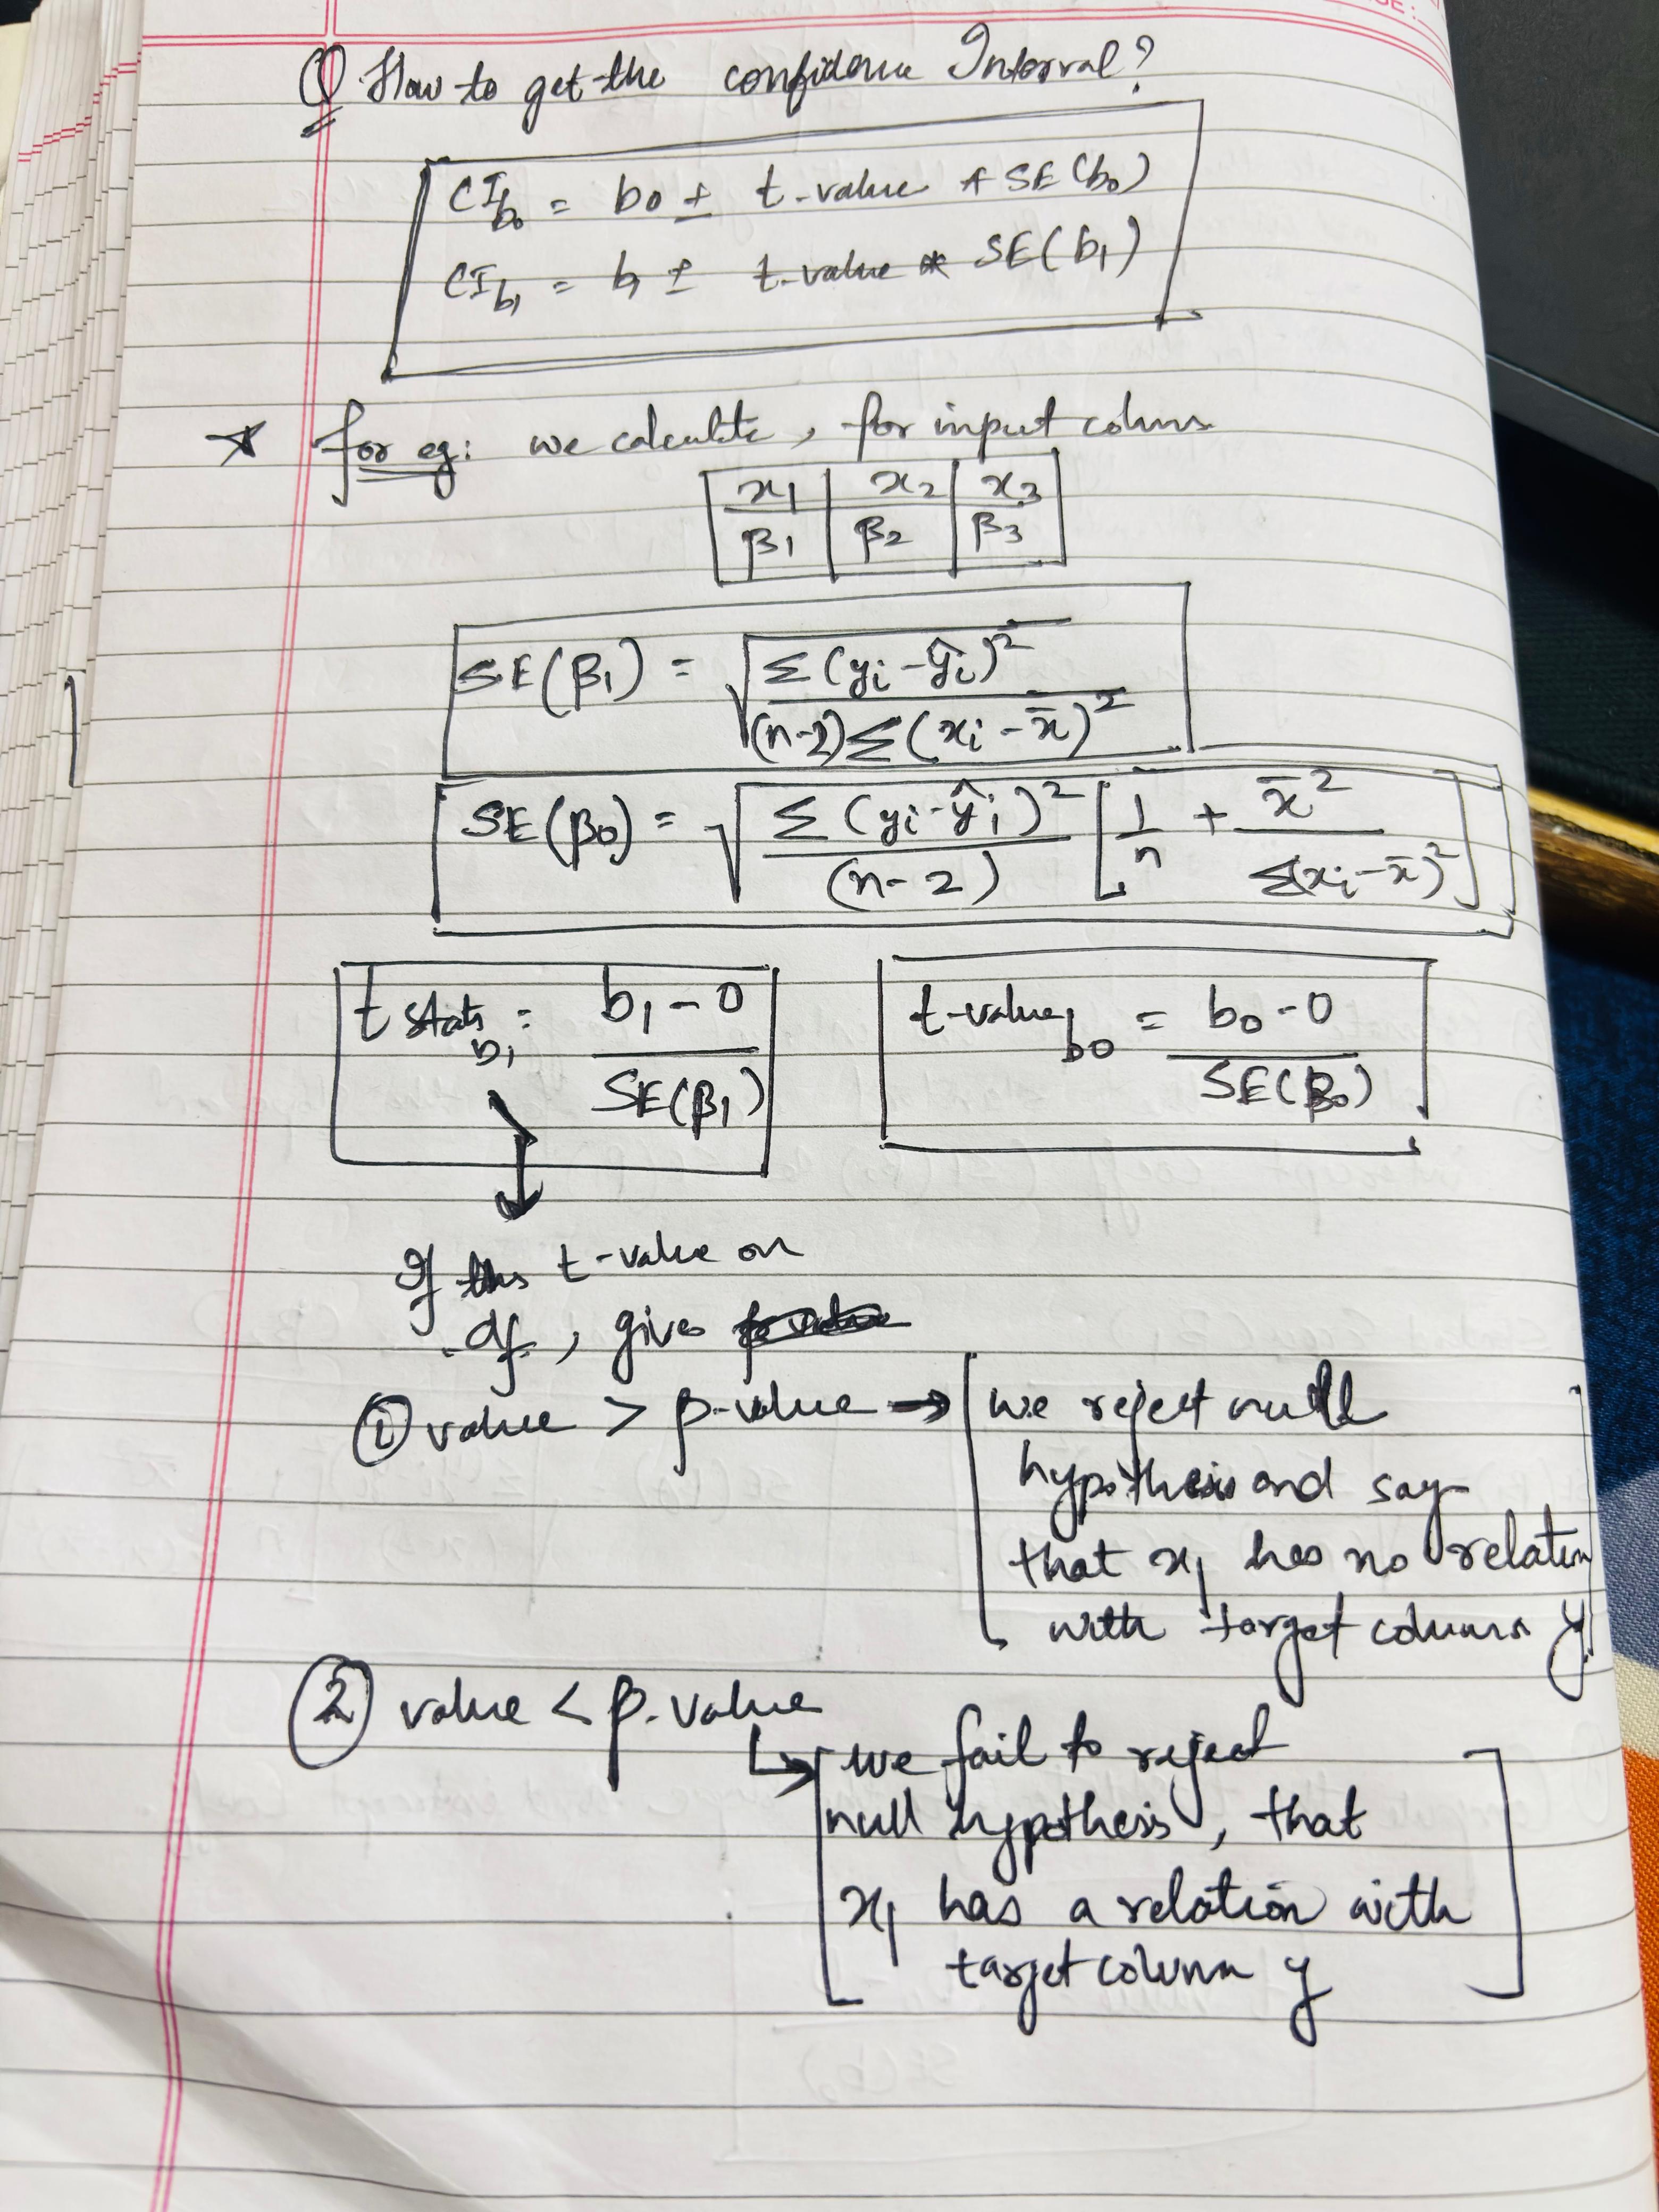 Q How to get the confidence Interval?
CI_b0 = b0 ± t-value * SE(b0)
CI_b1 = b1 ± t-value * SE(b1)
★ for eg: we calculate, for input colums
x1 | x2 | x3
β1 | β2 | β3
SE(β1) = √(Σ(yi - ŷi)² / (n-2)Σ(xi - x̄)²)
SE(β0) = √(Σ(yi - ŷi)² / (n-2) [1/n + x̄² / Σ(xi - x̄)²])
t stats b1 = (b1 - 0) / SE(β1)
t-value b0 = (b0 - 0) / SE(β0)
If this t-value on
df, gives
① value > p-value → we reject null
hypothesis and say
that x1 has no relation
with target column y
② value < p-value
↳ we fail to reject
null hypothesis, that
x1 has a relation with
target column y